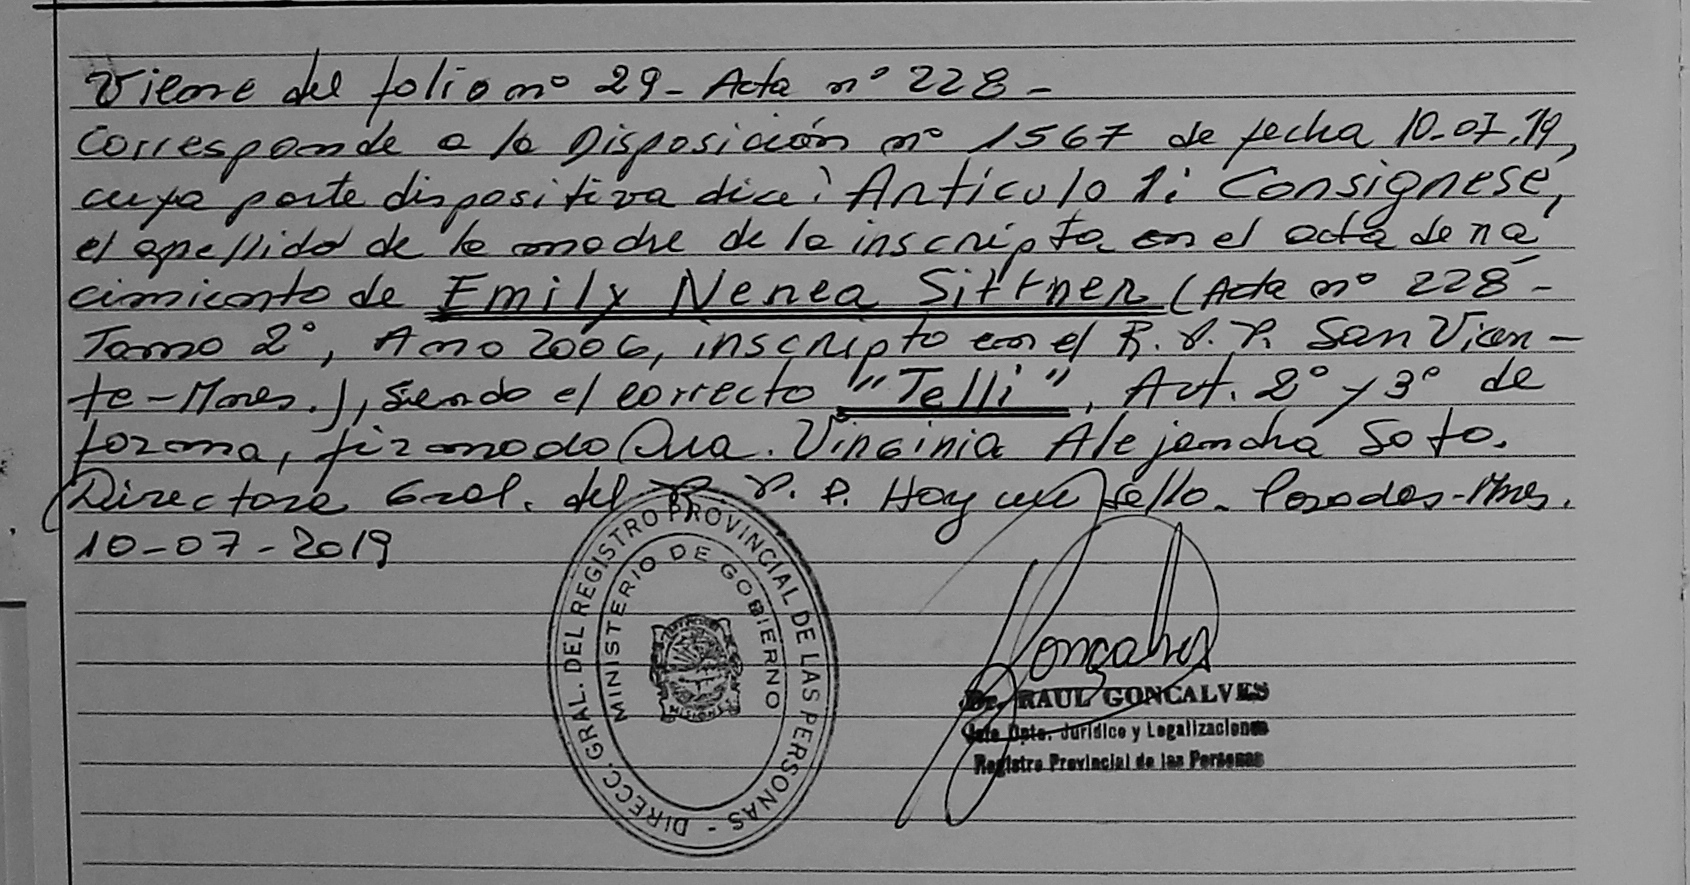 Viene del folio nº 29 - Acta nº 228 -
Corresponde a la Disposición nº 1567 de fecha 10-07.19,
cuya parte dispositiva dice: Artículo 1: Consignese,
el apellido de la madre de la inscripta en el acta de na
cimiento de Emily Nerea Sittner (Acta nº 228 -
Tomo 2º, Año 2006, inscripto en el R. P. P. San Vicen-
te - Mnes.), siendo el correcto "Telli", Art. 2º y 3º de
forma, firmado Dra. Virginia Alejandra Soto.
Directora Gral. del R. P. P. Hay un sello. Posadas - Mnes.
10-07-2019
DIRECC. GRAL. DEL REGISTRO PROVINCIAL DE LAS PERSONAS -
MINISTERIO DE GOBIERNO
MISIONES
Gonçalves
Dr. RAUL GONCALVES
Jefe Dpto. Jurídico y Legalizaciones
Registro Provincial de las Personas